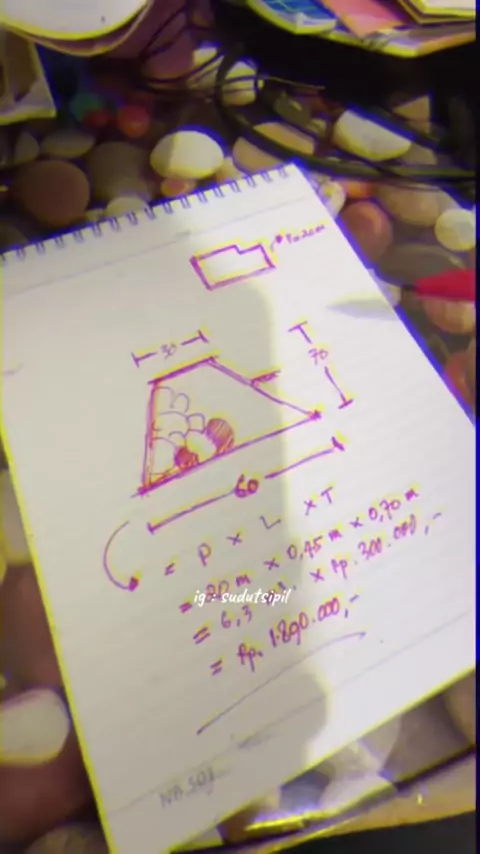 30
70
60
= P x L x T
= 20 m x 0,45 m x 0,70 m
= 6,3 x Rp. 300.000,-
ig : sudutsipil
= Rp. 1.890.000,-